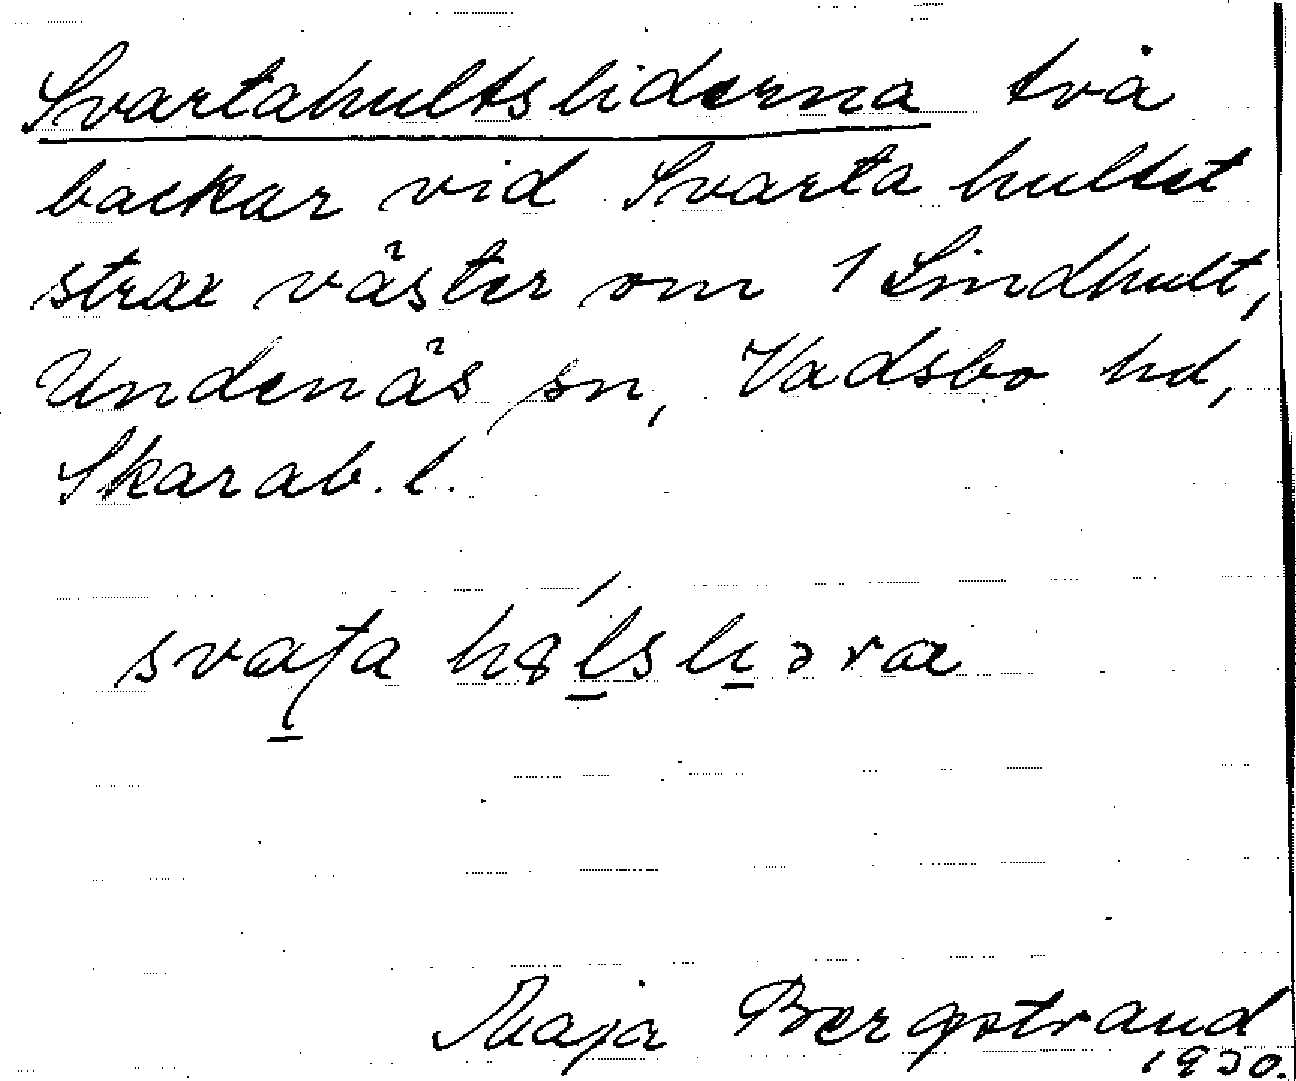 Svartahultsliderna två
backar vid Svarta hultet
strax väster om 1 Lindhult,
Undenäs sn, Vadsbo hd,
Skarab. l.
Maja Bergstrand
1930.